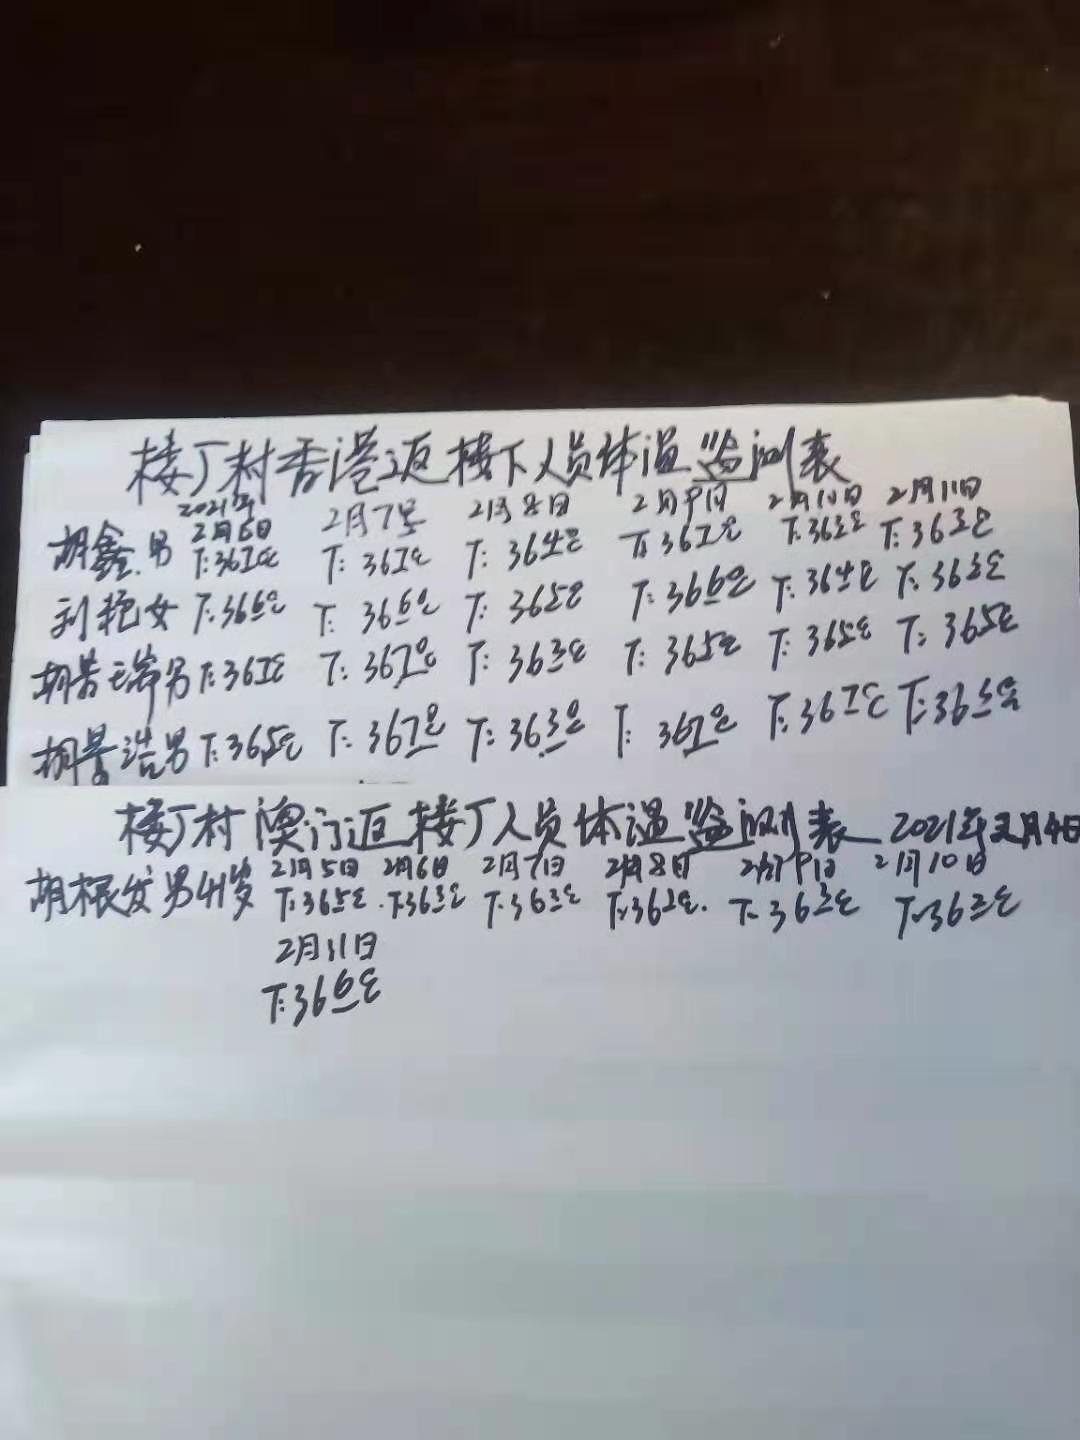 楼丁村香港返楼下人员体温监测表
2021年
2月6日 2月7号 2月8日 2月9日 2月10日 2月11日
胡鑫.男 T:367℃ T:367℃ T:364℃ T:367℃ T:363℃ T:363℃
刘艳女 T:366℃ T:366℃ T:365℃ T:366℃ T:364℃ T:363℃
胡景瑞男 T:367℃ T:367℃ T:363℃ T:365℃ T:365℃ T:365℃
胡景浩男 T:36.5℃ T:367℃ T:363℃ T:367℃ T:367℃ T:365℃
楼丁村澳门返楼丁人员体温监测表 2021年2月4日
2月5日 2月6日 2月7日 2月8日 2月9日 2月10日
胡根发男41岁 T:365℃ T:363℃ T:363℃ T:362℃ T:363℃ T:363℃
2月11日
T:366℃